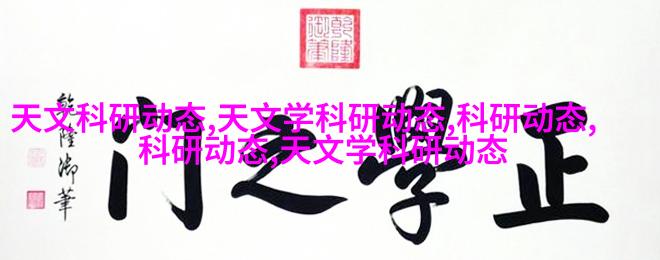 乾隆
御筆
天文科研动态,天文学科研动态,科研动态,
科研动态,天文学科研动态
正學之门
乾隆御筆